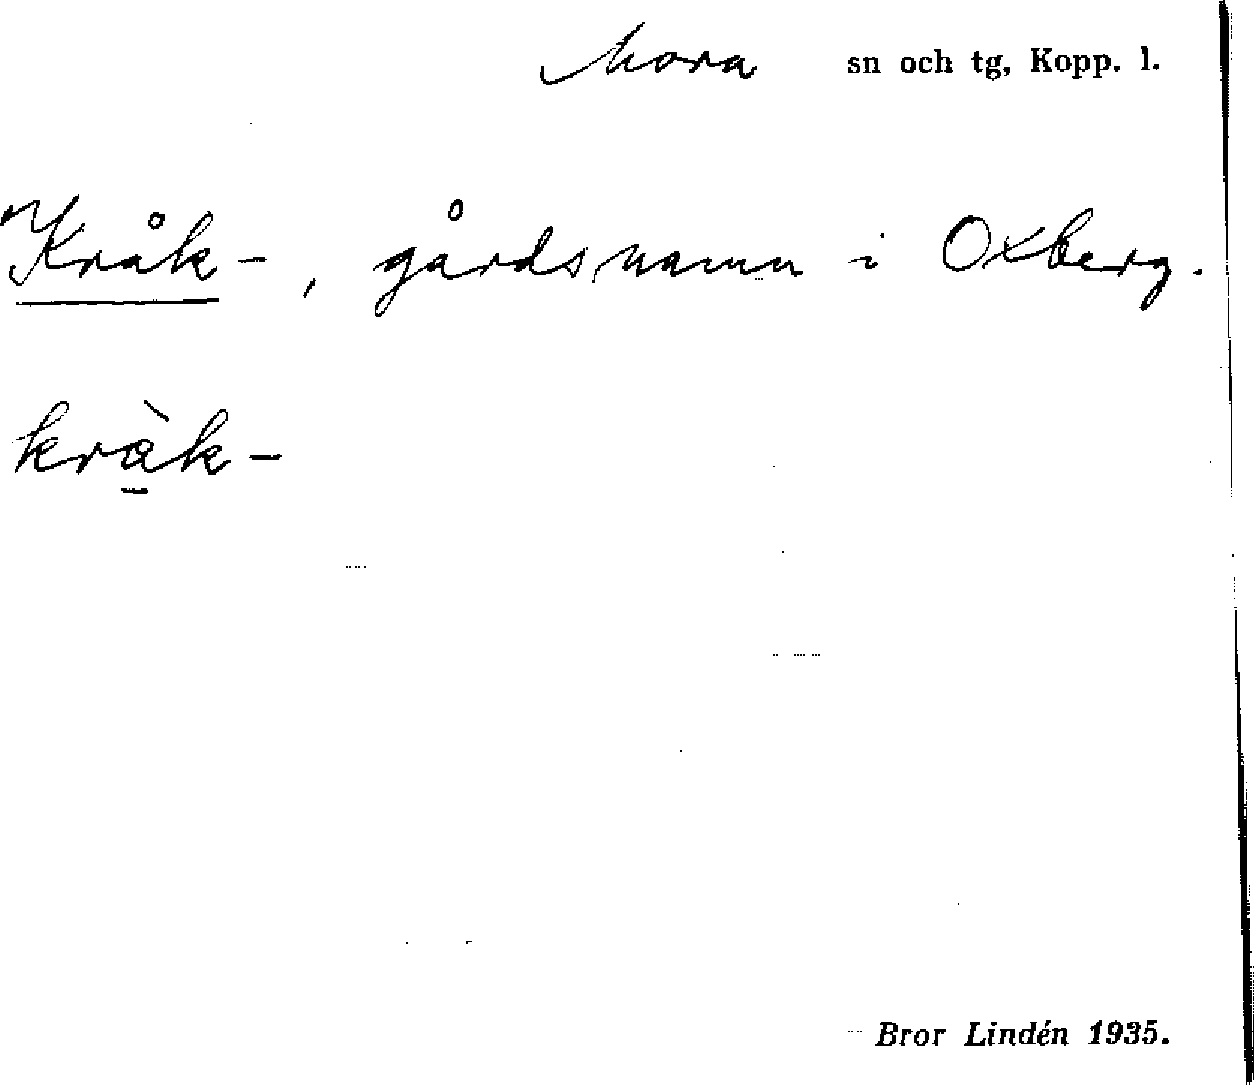 Mora sn och tg, Kopp. l.
Kråk-, gårdsnamn i Oxberg.
krà̱k-
Bror Lindén 1935.